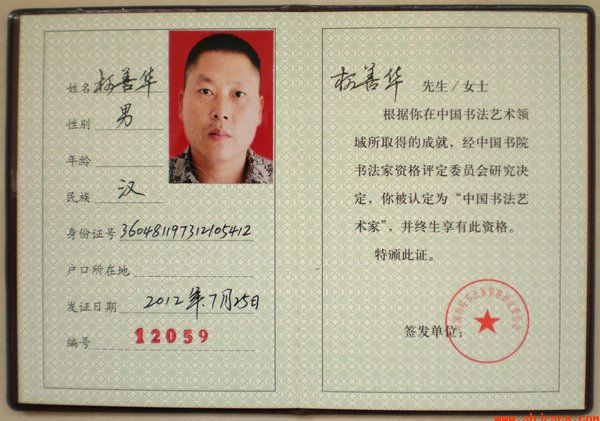 姓名 柯善华
性别 男
年龄
民族 汉
身份证号 360481197312105412
户口所在地
发证日期 2012年7月25日
编号 12059
柯善华 先生/女士
根据你在中国书法艺术领
域所取得的成就，经中国书院
书法家资格评定委员会研究决
定，你被认定为“中国书法艺
术家”，并终生享有此资格。
特颁此证。
签发单位：